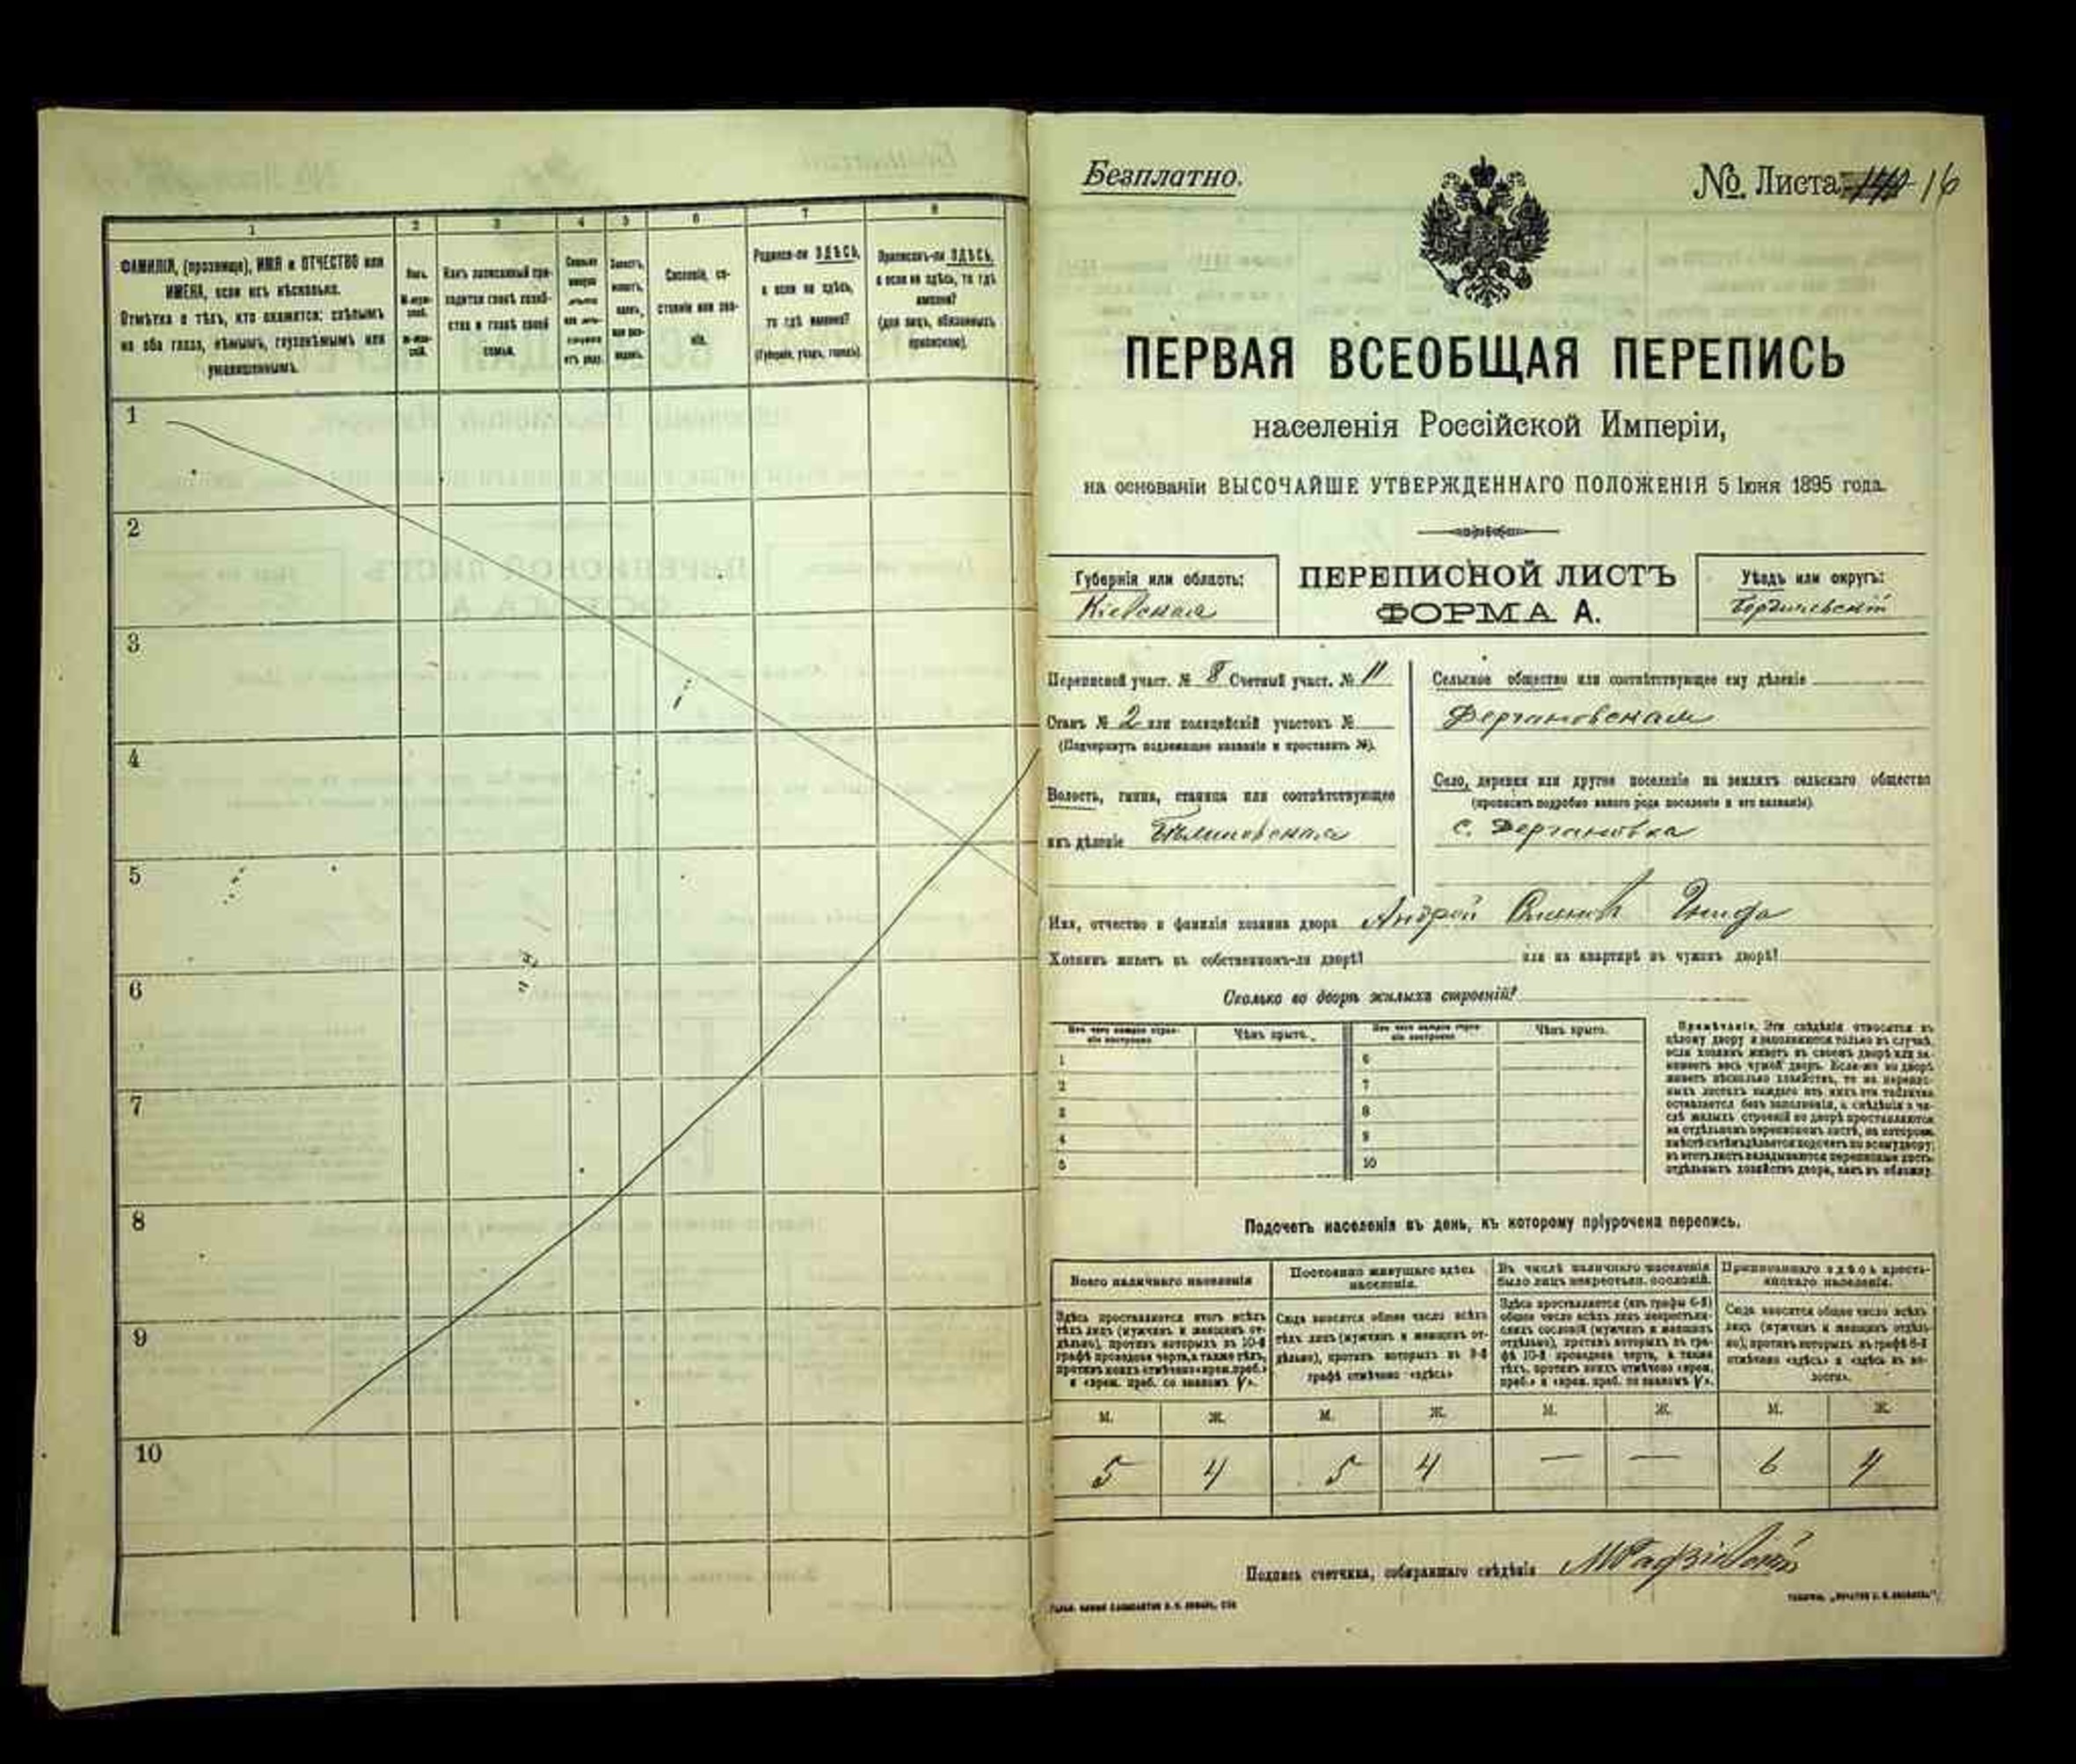 1 2 3 4 5 6 7 8
ФАМИЛІЯ, (прозвище), ИМЯ и ОТЧЕСТВО или
ИМЕНА, если ихъ нѣсколько.
Отмѣтка о тѣхъ, кто окажется: слѣпымъ
на оба глаза, нѣмымъ, глухонѣмымъ или
умалишеннымъ.
Полъ.
Какъ записанный при-
ходится главѣ хозяй-
ства и главѣ своей
семьи.
Сословіе, со-
стояніе или зва-
ніе.
Родился-ли ЗДѢСЬ,
а если не здѣсь,
то гдѣ именно?
(Губернія, уѣздъ, городъ).
Приписанъ-ли ЗДѢСЬ,
а если не здѣсь, то гдѣ
именно?
(для лицъ, обязанныхъ
припискою).
1
2
3
4
5
6
7
8
9
10
Безплатно.
№ Листа 16
ПЕРВАЯ ВСЕОБЩАЯ ПЕРЕПИСЬ
населенія Россійской Имперіи,
на основаніи ВЫСОЧАЙШЕ УТВЕРЖДЕННАГО ПОЛОЖЕНІЯ 5 Іюня 1895 года.
Губернія или область:
Кіевская
ПЕРЕПИСНОЙ ЛИСТЪ
ФОРМА А.
Уѣздъ или округъ:
Бердичевскій
Переписной участ. № 8 Счетный участ. № 11
Станъ № 2 или полицейскій участокъ №
(Подчеркнуть подлежащее названіе и проставить №).
Волость, гмина, станица или соотвѣтствующее
имъ дѣленіе
Сельское общество или соотвѣтствующее ему дѣленіе
Дергановская
Село, деревня или другое поселеніе на земляхъ сельскаго общества
(прописать подробно какого рода поселеніе и его названіе).
с. Дергановка
Имя, отчество и фамилія хозяина двора Андрей
Хозяинъ живетъ въ собственномъ-ли дворѣ? или на квартирѣ въ чужомъ дворѣ?
Сколько во дворѣ жилыхъ строеній?
Изъ чего каждое строе-
ніе построено
Чѣмъ крыто.
Изъ чего каждое строе-
ніе построено
Чѣмъ крыто.
1 6
2 7
3 8
4 9
5 10
Примѣчаніе. Эти свѣдѣнія относятся къ
цѣлому двору и заполняются только въ случаѣ,
если хозяинъ живетъ въ своемъ дворѣ или за-
нимаетъ весь чужой дворъ. Если-же во дворѣ
живетъ нѣсколько хозяйствъ, то на перепис-
ныхъ листахъ каждаго изъ нихъ эти таблички
оставляются безъ заполненія, а свѣдѣнія о чи-
слѣ жилыхъ строеній во дворѣ проставляются
на отдѣльномъ переписномъ листѣ, на которомъ
вмѣстѣ съ тѣмъ дѣлается подсчетъ по всему двору;
въ этотъ листъ вкладываются переписные листы
отдѣльныхъ хозяйствъ двора, какъ въ обложку.
Подсчетъ населенія въ день, къ которому пріурочена перепись.
Всего наличнаго населенія
Здѣсь проставляется итогъ всѣхъ
тѣхъ лицъ (мужчинъ и женщинъ от-
дѣльно), противъ которыхъ въ 10-й
графѣ проведена черта, а также тѣхъ,
противъ коихъ отмѣчено «врем. преб.»
и «врем. преб. со знакомъ V».
Постоянно живущаго здѣсь
населенія.
Сюда вносится общее число всѣхъ
тѣхъ лицъ (мужчинъ и женщинъ от-
дѣльно), противъ которыхъ въ 9-й
графѣ отмѣчено «здѣсь»
Въ числѣ наличнаго населенія
было лицъ некрестьян. сословій.
Здѣсь проставляется (изъ графы 6-й)
общее число всѣхъ лицъ некрестьян-
скихъ сословій (мужчинъ и женщинъ
отдѣльно), противъ которыхъ въ гра-
фѣ 10-й проведена черта, а также
тѣхъ, противъ коихъ отмѣчено «врем.
преб.» и «врем. преб. со знакомъ V».
Приписаннаго здѣсь кресть-
янскаго населенія.
Сюда вносится общее число всѣхъ
лицъ (мужчинъ и женщинъ отдѣль-
но), противъ которыхъ въ графѣ 8-й
отмѣчено «здѣсь» и «здѣсь въ во-
лости».
М. Ж. М. Ж. М. Ж. М. Ж.
5 4 5 4 — — 6 4
Подпись счетчика, собиравшаго свѣдѣнія